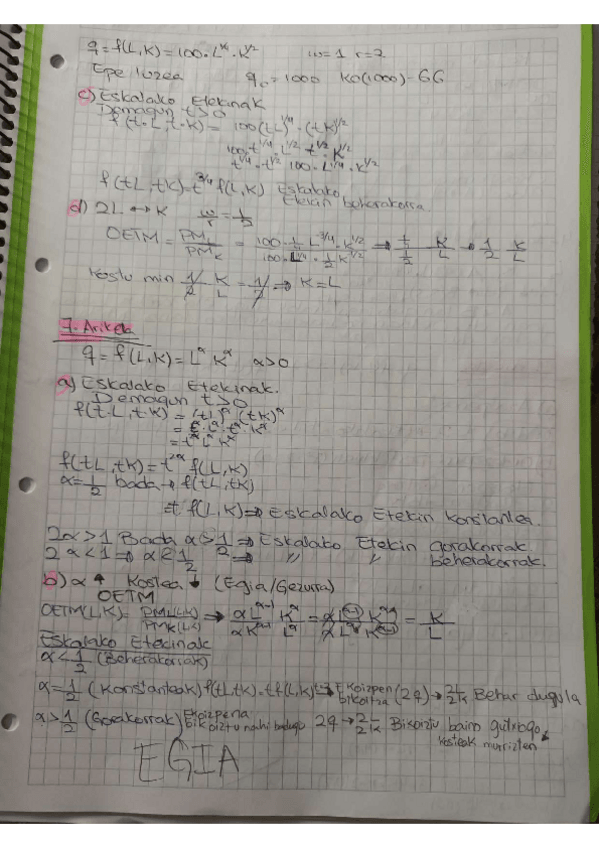 q = f(L,K) = 100 · L^1/4 · K^1/2   w=1 r=2
Epe luzea   q₀ = 1000   K0(1000) - GG
c) Eskalako Etekinak
Demagun t>0
f(t·L, t·K) = 100(tL)^1/4 · (tK)^1/2
100·t^1/4 · L^1/2 t^1/2 · K^1/2
t^1/4 · t^1/2 100 · L^1/4 · K^1/2
f(tL, tK) = t^3/4 f(L,K) Eskalako
Etekin beherakorra
d) 2L ↔ K   w/r = 1/2
OETM = PM_L/PM_K = 100 · 1/4 L^3/4 · K^1/2 / 100 · L^1/4 · 1/2 K^1/2 → 1/4 / 1/2 K/L → 1/2 K/L
Kostu min 1/2 K/L = 1/2 ⇒ K=L
7. Ariketa
q = f(L,K) = L^α K^α   α>0
a) Eskalako Etekinak.
Demagun t>0
f(t·L, t·K) = (tL)^α (tK)^α
= t^α · L^α · t^α · K^α
= t^α L^α K^α
f(tL, tK) = t^2α f(L,K)
α = 1/2 bada → f(tL, tK)
= t f(L,K) ⇒ Eskalako Etekin konstanteak.
2α>1 Bada α>1/2 ⇒ Eskalako Etekin gorakorrak
2α<1 ⇒ α<1/2 ⇒ " " beherakorrak.
b) α ↑ Kostea ↓ (Egia/Gezurra)
OETM
OETM(L,K) = PML(L,K)/PMK(L,K) ⇒ αL^α-1 K^α / αK^α-1 L^α = K/L
Eskalako Etekinak
α<1/2 (Beherakorrak)
α = 1/2 (Konstanteak) f(tL,tK) = t f(L,K) Ekoizpen bikoitza (2q) → 2L 2K Behar dugula
α>1/2 (Gorakorrak) Ekoizpena bikoiztu nahi badugu 2q → 2L 2K Bikoiztu baino gutxiago
kosteak murrizten
EGIA